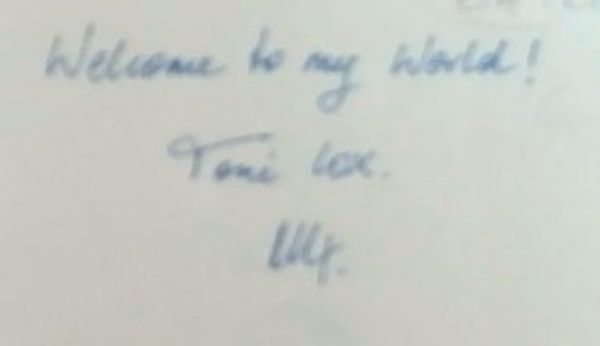 Welcome to my World!
Toni